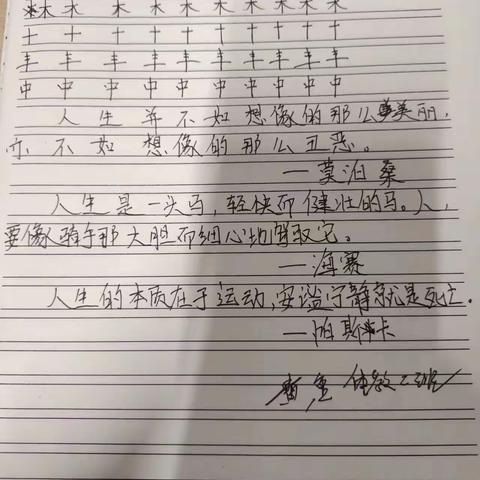 林 木 木 木 木 木 木 木 木
十 十 十 十 十 十 十 十 十
丰 丰 丰 丰 丰 丰 丰 丰 丰
中 中 中 中 中 中 中 中 中
人生并不如想像的那么美丽,
亦不如想像的那么丑恶。
—莫泊桑
人生是一头马,轻快而健壮的马。人,
要像骑手那大胆而细心地驾驭它。
—海赛
人生的本质在于运动,安谧宁静就是死亡.
—帕斯卡
二班